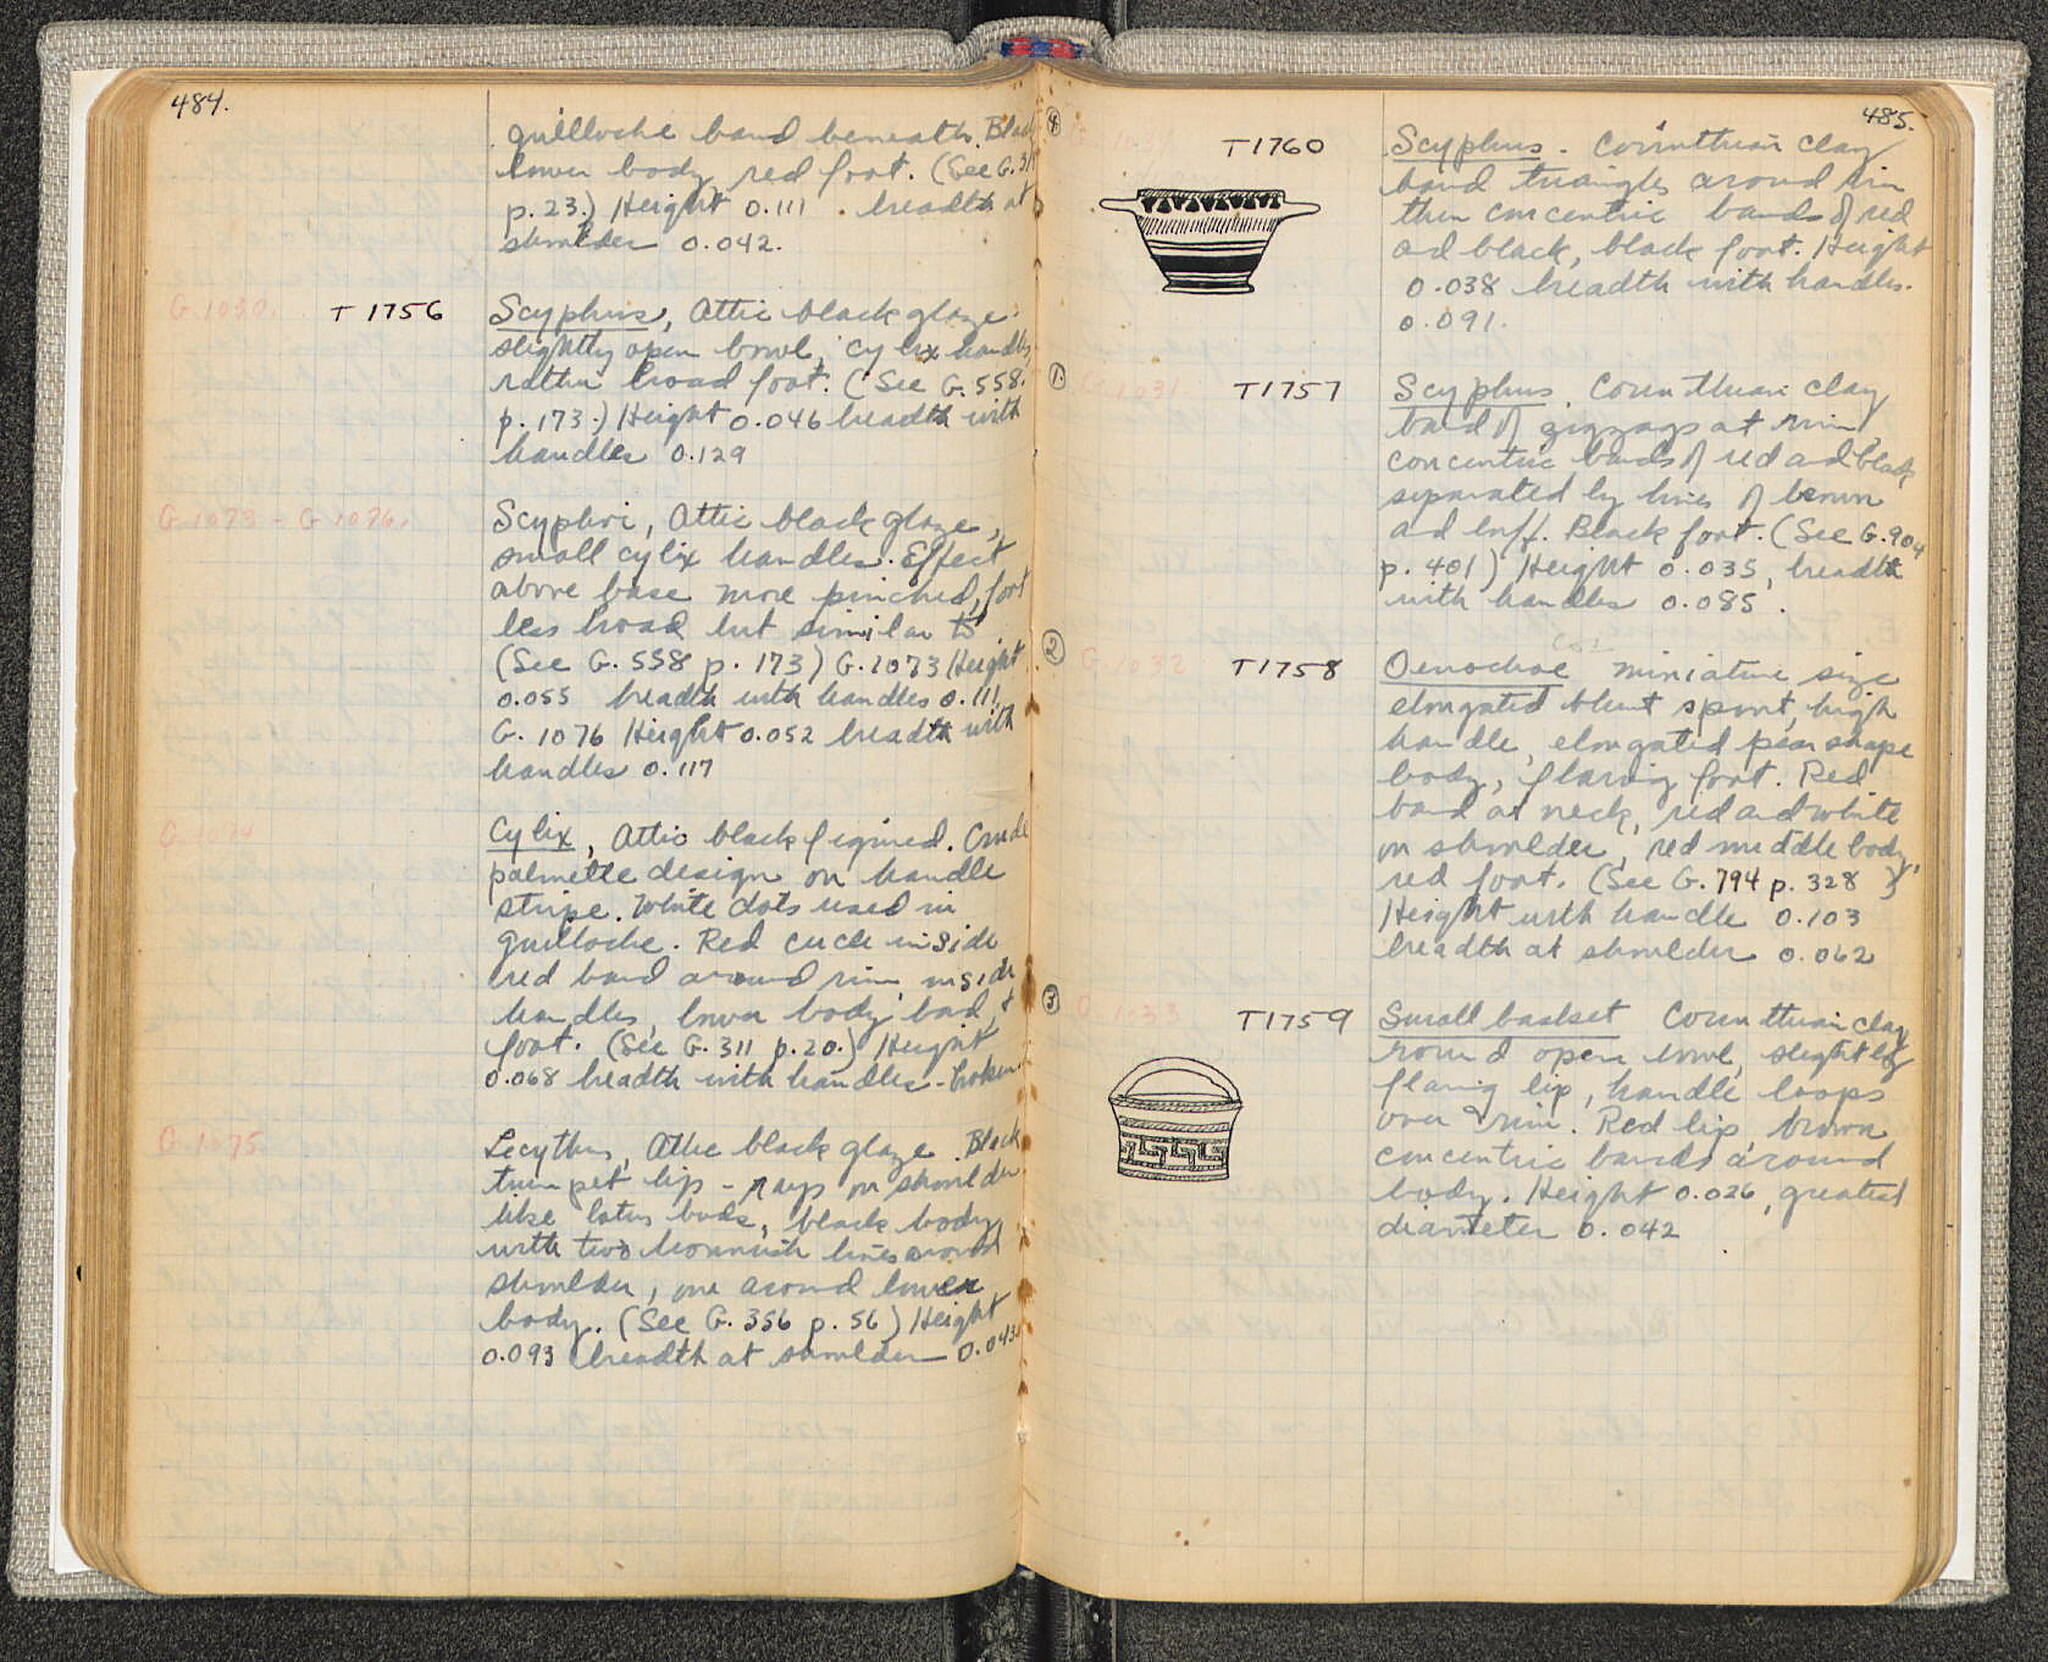 484.
guilloche band beneath. Black
lower body, red foot. (See G. 31
p. 23.) Height 0.111 . breadth at
shoulder 0.042.
G. 1030. T 1756 Scyphus, Attic black glaze
slightly open bowl, cylix handles,
rather broad foot. (See G. 558.
p. 173.) Height 0.046 breadth with
handles 0.129
G. 1073 - G 1076. Scyphoi, Attic black glaze,
small cylix handles. Effect
above base more pinched, foot
less broad but similar to
(See G. 558 p. 173) G. 1073 Height
0.055 breadth with handles 0.111.
G. 1076 Height 0.052 breadth with
handles 0.117
G. 1074 Cylix, Attic black figured. Crude
palmette design on handle
stripe. White dots used in
guilloche. Red circle inside
red band around rim, inside
handles, lower body band, +
foot. (See G. 311 p. 20.) Height
0.068 breadth with handles - broken.
G. 1075 Lecythus, Attic black glaze. Black
trumpet lip - rays on shoulder
like lotus buds, black body
with two brownish lines around
shoulder, one around lower
body. (See G. 356 p. 56) Height
0.093 breadth at shoulder 0.043.
485.
4 T1760 Scyphus. Corinthian clay
band triangles around rim
then concentric bands of red
and black, black foot. Height
0.038 breadth with handles.
0.091.
1. G. 1031 T1757 Scyphus. Corinthian clay
band of zigzags at rim,
concentric bands of red and black
separated by lines of brown
and buff. Black foot. (See G. 904
p. 401) Height 0.035, breadth
with handles 0.085.
2 G. 1032 T1758 Oenochoe miniature size
elongated blunt spout, high
handle, elongated pear shape
body, flaring foot. Red
band at neck, red and white
on shoulder, red middle body,
red foot. (See G. 794 p. 328 )
Height with handle 0.103
breadth at shoulder 0.062
3 G. 1033 T1759 Small basket Corinthian clay
round open bowl, slightly
flaring lip, handle loops
over rim. Red lip, brown
concentric bands around
body. Height 0.026, greatest
diameter 0.042